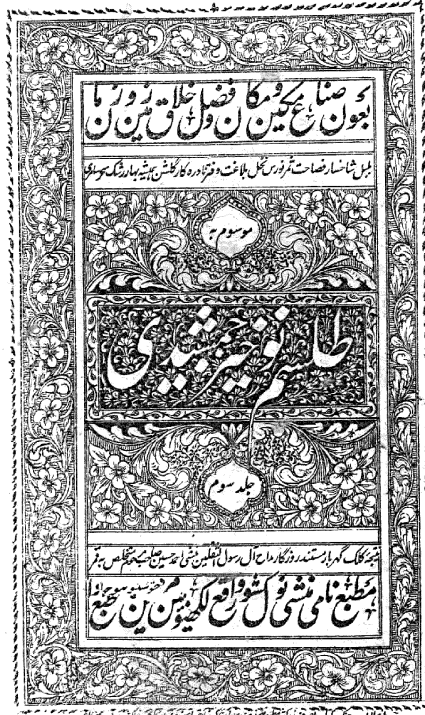 بعون صناع مکین و مکان و فضل خلاق زمین و زمان
بلبل شاخسار فصاحت ثمر نورس نخل بلاغت دفتر نادره کار گلشن ہمیشہ بہار رشک
موسوم بہ
طلسم نوخیز جمشیدی
جلد سوم
نتیجۂ کلک گہربار مستند روزگار مداح آل رسول الثقلین منشی احمد حسین صاحب متخلص بہ قمر
مطبع نامی منشی نول کشور واقع لکھنؤ مین